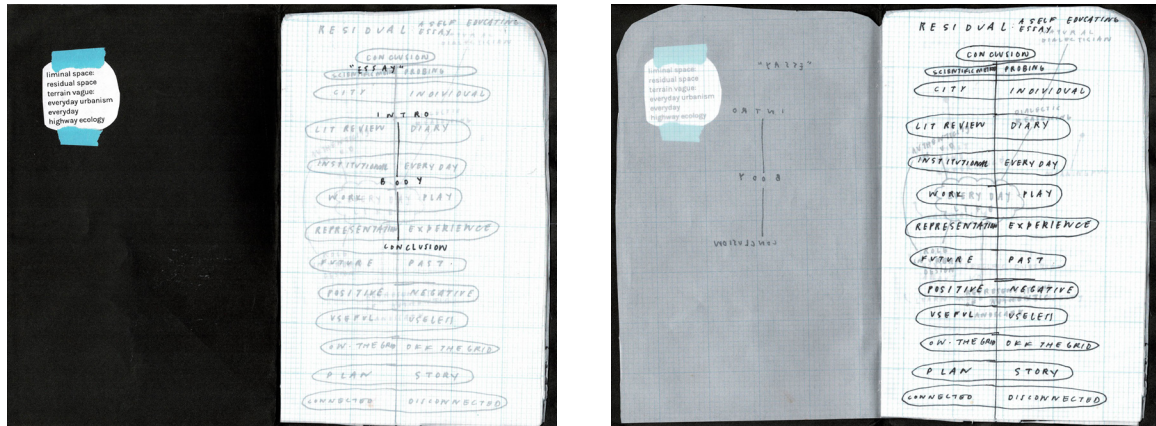 liminal space:
residual space
terrain vague:
everyday urbanism
everyday
highway ecology
RESIDUAL A SELF EDUCATING
ESSAY.
DIALECTICIAN
CONCLUSION
"ESSAY"
PROBING
CITY INDIVIDUAL
INTRO
LIT REVIEW DIARY
INSTITUTIONAL EVERYDAY
BODY
WORK PLAY
REPRESENTATION EXPERIENCE
CONCLUSION
FUTURE PAST
POSITIVE NEGATIVE
USEFUL USELESS
ON THE GRID OFF THE GRID
PLAN STORY
CONNECTED DISCONNECTED
liminal space:
residual space
terrain vague:
everyday urbanism
everyday
highway ecology
"ESSAY"
INTRO
BODY
CONCLUSION
RESIDUAL A SELF EDUCATING
ESSAY.
NATURAL
DIALECTICIAN
CONCLUSION
PROBING
CITY INDIVIDUAL
DIALECTIC
LIT REVIEW DIARY
INSTITUTIONAL EVERYDAY
WORK PLAY
EVERY DAY
REPRESENTATION EXPERIENCE
FUTURE PAST
POSITIVE NEGATIVE
USEFUL USELESS
ON THE GRID OFF THE GRID
PLAN STORY
CONNECTED DISCONNECTED